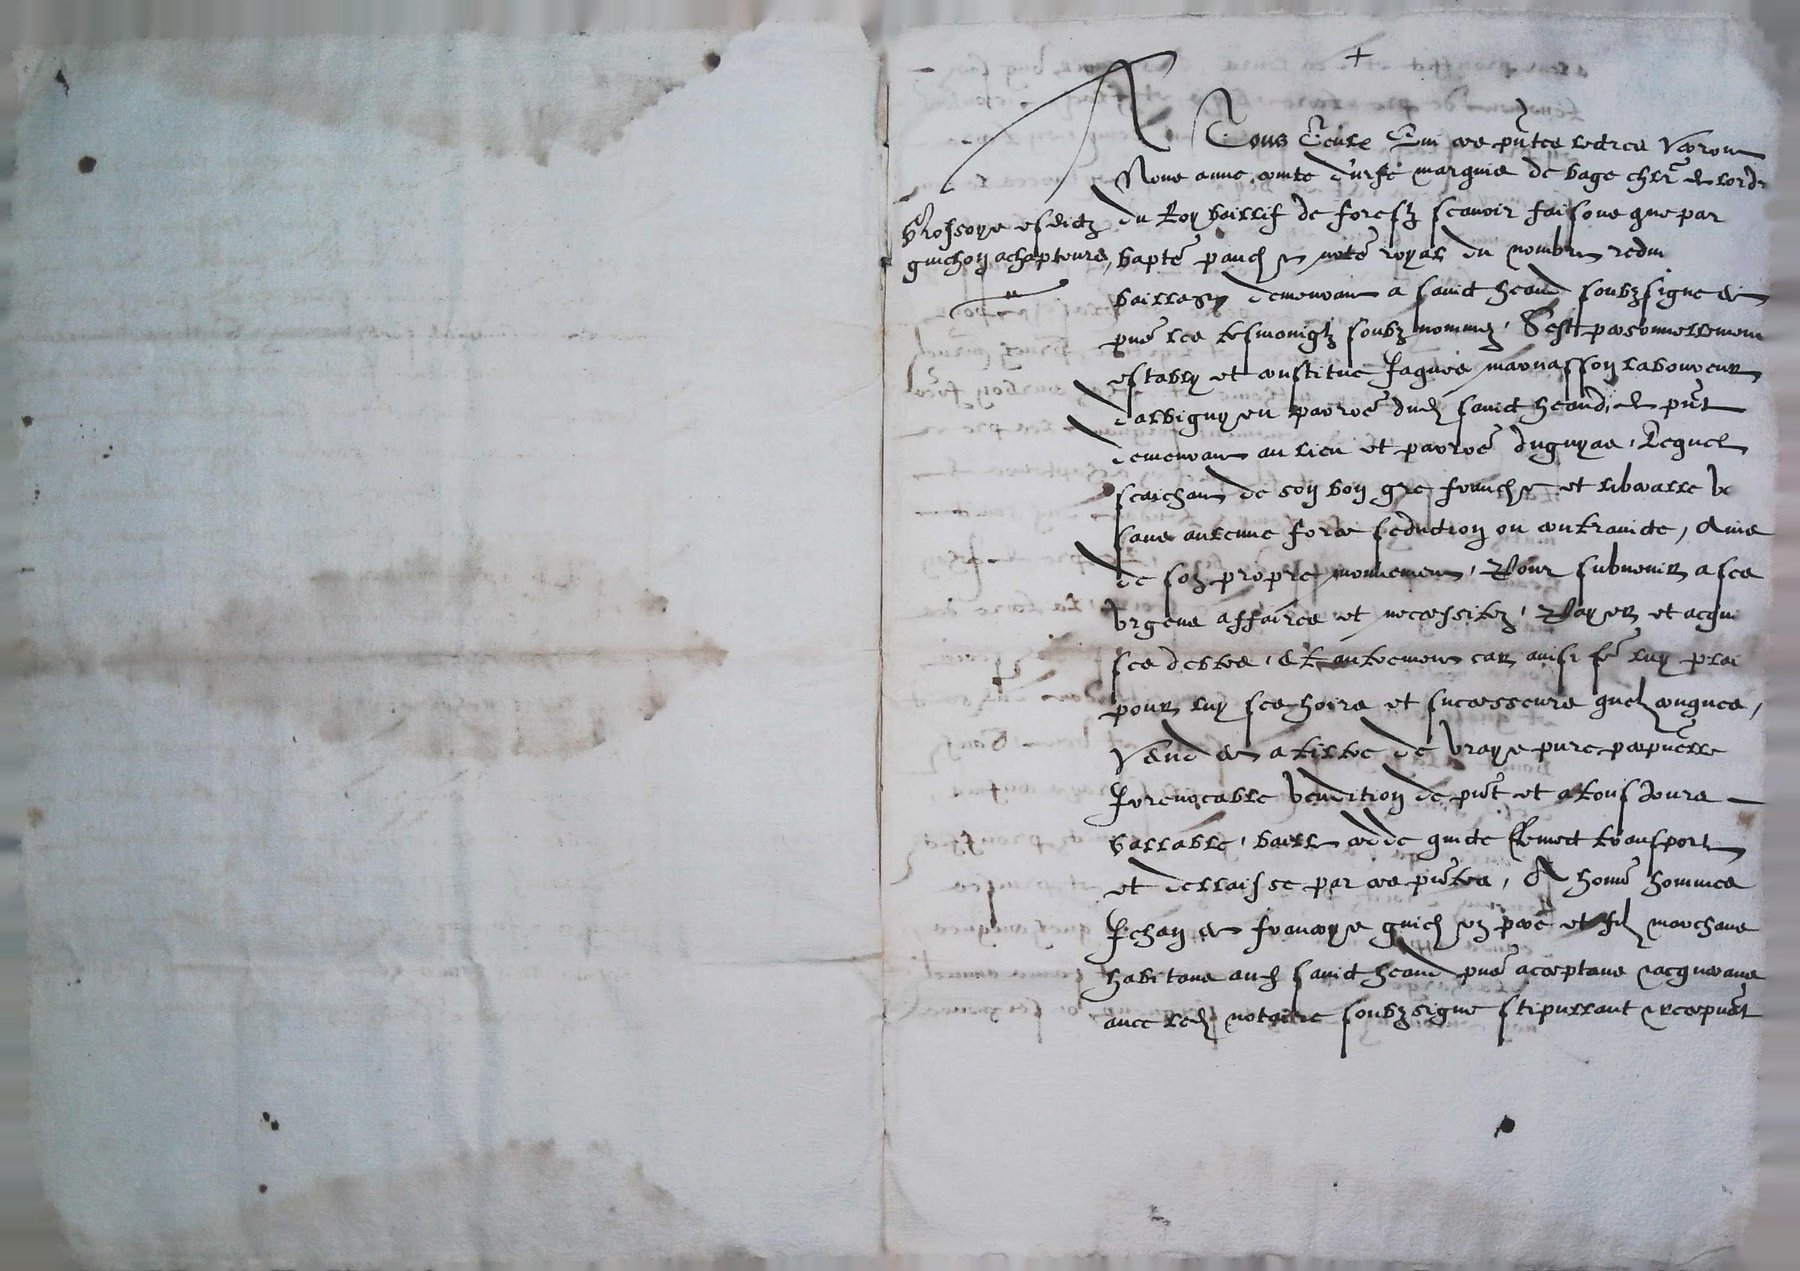 +
A Tous Ceulx Qui ces pntes lectres Verron
Nous anne comte d'urfe marquis de bage chlr de lord
du Roy baillif de forestz scavoir faisons que par
Grossoye esdictz
guichon achapteurs
bapte panch notre royal du nombre redui
bailliage demeurant a sainct heand soubzsigne et
pnt les tesmoingtz soubz nommez, S'est personnellement
estably et constitue Jaques marnasson laboureur
dalbigny en parroe dud sainct heand, de pnt
demeurant au lieu et parroe duguyas, Lequel
scaichant de son bon gre franche et liberalle v
sans aulcune force seduction ou contraincte, Ains
de son propre mouvement, Pour subvenir a ses
urgens affaires et necessitez, Payer et acqui
ses debtes, Et aultrement car ainsi fe luy plai
pour luy ses hoirs et successeurs quelzconques,
Vend et a tiltre de vraye pure perpuelle
Irrevocable vendition de pnt et a tousjours
vallable, baille cedde quicte Remect transporte
et dellaisse par ces pntes, A hone hommes
Jehan et francoys guichon pere et filz marchans
habitans aud sainct heand pns acceptans acquerans
avec led notaire soubzsigne stipullant recepvant